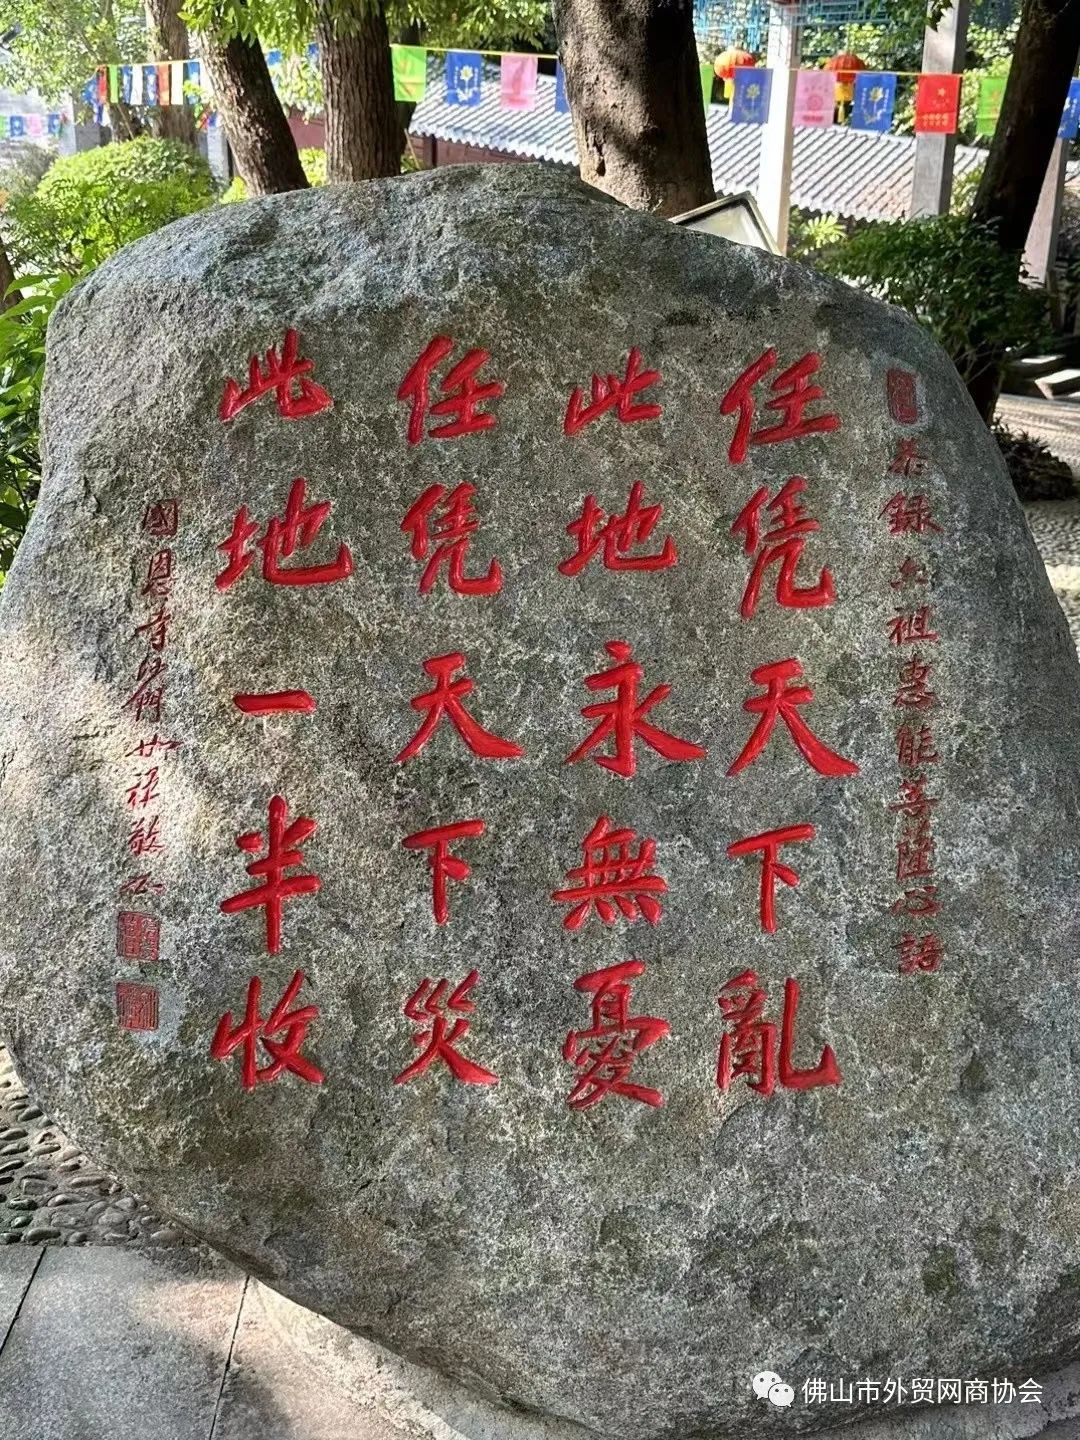 恭錄六祖惠能菩薩心語
任凭天下亂
此地永無憂
任凭天下災
此地一半收
國恩寺沙門如禄敬书
佛山市外贸网商协会